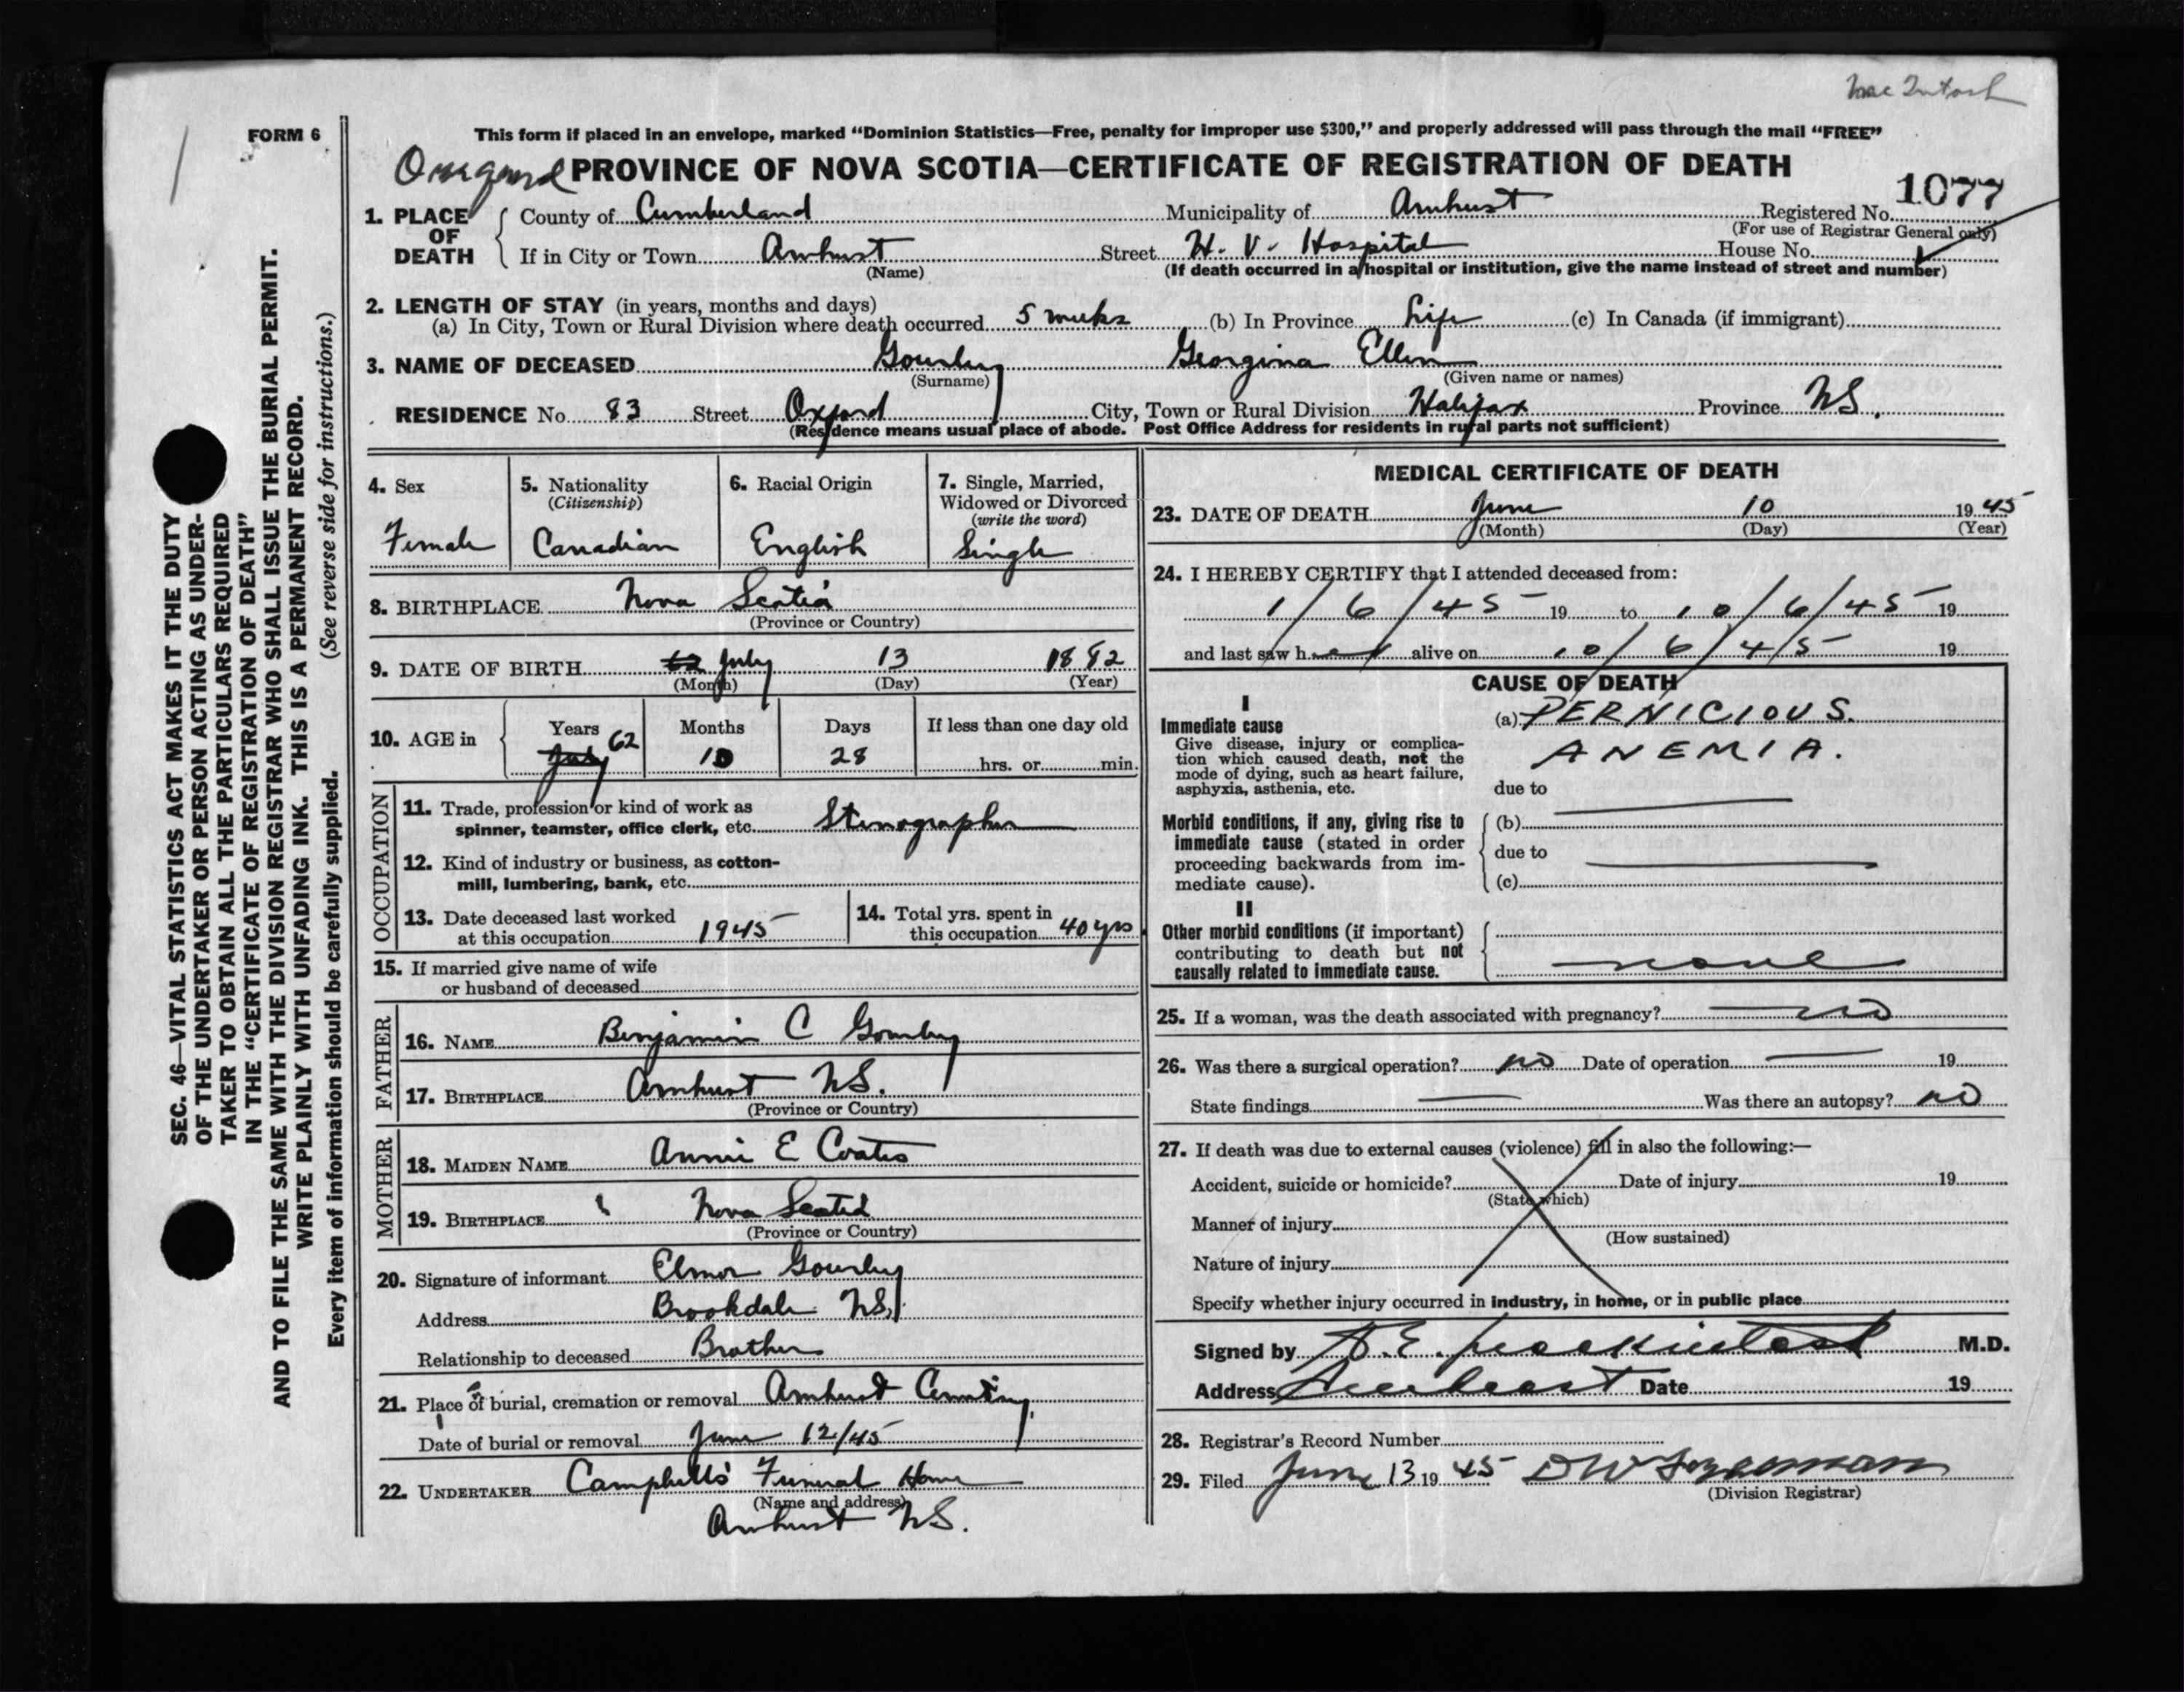 Mac Intosh
FORM 6
This form if placed in an envelope, marked “Dominion Statistics—Free, penalty for improper use $300,” and properly addressed will pass through the mail “FREE”
PROVINCE OF NOVA SCOTIA—CERTIFICATE OF REGISTRATION OF DEATH
1077
1. PLACE OF DEATH
County of Cumberland Municipality of Amherst Registered No.
(For use of Registrar General only)
If in City or Town Amherst Street H. V. Hospital House No.
(Name) (If death occurred in a hospital or institution, give the name instead of street and number)
2. LENGTH OF STAY (in years, months and days)
(a) In City, Town or Rural Division where death occurred 5 weeks (b) In Province Life (c) In Canada (if immigrant)
3. NAME OF DECEASED Gourley Georgina Ellen
(Surname) (Given name or names)
RESIDENCE No. 83 Street Oxford City, Town or Rural Division Halifax Province NS.
(Residence means usual place of abode. Post Office Address for residents in rural parts not sufficient)
4. Sex
Female
5. Nationality
(Citizenship)
Canadian
6. Racial Origin
English
7. Single, Married,
Widowed or Divorced
(write the word)
Single
8. BIRTHPLACE Nova Scotia
(Province or Country)
9. DATE OF BIRTH 62 July 13 1882
(Month) (Day) (Year)
10. AGE in
Years Months Days If less than one day old
July 62 10 28 hrs. or min.
OCCUPATION
11. Trade, profession or kind of work as
spinner, teamster, office clerk, etc. Stenographer
12. Kind of industry or business, as cotton-
mill, lumbering, bank, etc.
13. Date deceased last worked
at this occupation 1945
14. Total yrs. spent in
this occupation 40 yrs
15. If married give name of wife
or husband of deceased
FATHER
16. NAME Benjamin C Gourley
17. BIRTHPLACE Amherst NS.
(Province or Country)
MOTHER
18. MAIDEN NAME Annie E Coates
19. BIRTHPLACE Nova Scotia
(Province or Country)
20. Signature of informant Elmer Gourley
Address Brookdale NS.
Relationship to deceased Brother
21. Place of burial, cremation or removal Amherst Cemetery
Date of burial or removal June 12/45
22. UNDERTAKER Campbells' Funeral Home
(Name and address)
Amherst NS.
MEDICAL CERTIFICATE OF DEATH
23. DATE OF DEATH June 10 1945
(Month) (Day) (Year)
24. I HEREBY CERTIFY that I attended deceased from:
1/6/45 19 to 10/6/45 19
and last saw her alive on 10/6/45 19
CAUSE OF DEATH
I
Immediate cause
Give disease, injury or complica-
tion which caused death, not the
mode of dying, such as heart failure,
asphyxia, asthenia, etc.
(a) PERNICIOUS.
ANEMIA.
due to
Morbid conditions, if any, giving rise to
immediate cause (stated in order
proceeding backwards from im-
mediate cause).
(b)
due to
(c)
II
Other morbid conditions (if important)
contributing to death but not
causally related to immediate cause.
none
25. If a woman, was the death associated with pregnancy? no
26. Was there a surgical operation? no Date of operation 19
State findings Was there an autopsy? no
27. If death was due to external causes (violence) fill in also the following:—
Accident, suicide or homicide? Date of injury 19
(State which)
Manner of injury
(How sustained)
Nature of injury
Specify whether injury occurred in industry, in home, or in public place
Signed by E. Mackintosh M.D.
Address Amherst Date 19
28. Registrar's Record Number
29. Filed June 13 19 45 D W
(Division Registrar)
SEC. 46—VITAL STATISTICS ACT MAKES IT THE DUTY
OF THE UNDERTAKER OR PERSON ACTING AS UNDER-
TAKER TO OBTAIN ALL THE PARTICULARS REQUIRED
IN THE “CERTIFICATE OF REGISTRATION OF DEATH”
AND TO FILE THE SAME WITH THE DIVISION REGISTRAR WHO SHALL ISSUE THE BURIAL PERMIT.
WRITE PLAINLY WITH UNFADING INK. THIS IS A PERMANENT RECORD.
Every item of information should be carefully supplied. (See reverse side for instructions.)